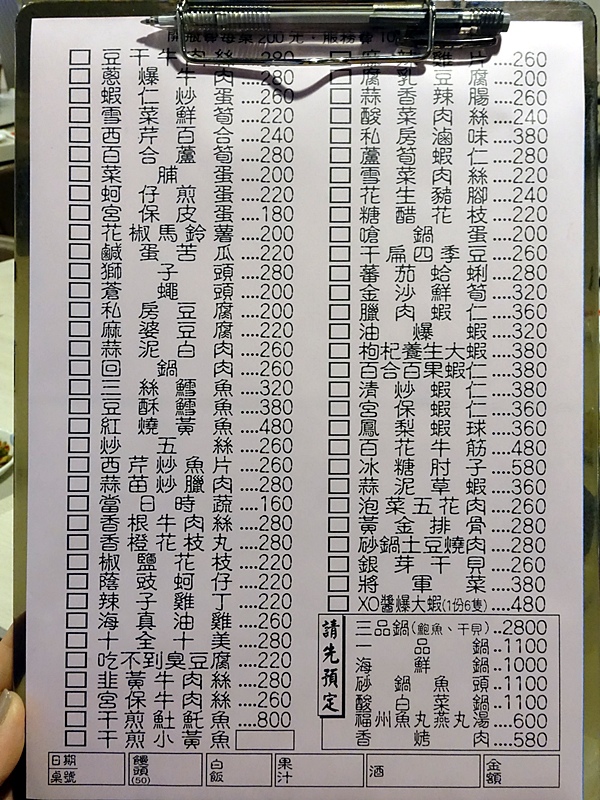 開瓶費每桌200元，服務費10%
豆干牛肉絲....280
蔥爆牛肉....280
蝦仁炒蛋....260
雪菜鮮筍....220
西芹百合....240
百合蘆筍....280
菜脯蛋....200
蚵仔煎蛋....220
宮保皮蛋....180
花椒馬鈴薯....200
鹹蛋苦瓜....220
獅子頭....280
蒼蠅頭....200
私房豆腐....200
麻婆豆腐....220
蒜泥白肉....260
回鍋肉....260
三絲鱈魚....320
豆酥鱈魚....380
紅燒黃魚....480
炒五絲....260
西芹炒魚片....260
蒜苗炒臘肉....280
當日時蔬....160
香根牛肉絲....280
香橙花枝丸....280
椒鹽花枝....220
蔭豉蚵仔....220
辣子雞丁....220
海真油雞....260
十全十美....280
吃不到臭豆腐....220
韭黃牛肉絲....280
宮保牛肉....280
干煎魠魠魚....800
干煎小黃魚
雞片....260
腐乳豆腐....200
蒜香辣腸....260
酸菜肉絲....240
私房滷味....380
蘆筍蝦仁....280
雪菜肉絲....220
花生豬腳....240
糖醋花枝....220
嗆鍋蛋....200
干扁四季豆....260
蕃茄蛤蜊....280
金沙鮮筍....320
臘肉蝦仁....360
油爆蝦....320
枸杞養生大蝦....380
百合百果蝦仁....380
清炒蝦仁....380
宮保蝦仁....360
鳳梨蝦球....360
百花牛筋....480
冰糖肘子....580
蒜泥草蝦....360
泡菜五花肉....260
黃金排骨....280
砂鍋土豆燒肉....280
銀芽干貝....260
將軍菜....380
XO醬爆大蝦(1份6隻)....480
請先預定
三品鍋(鮑魚、干貝)..2800
一品鍋..1100
海鮮鍋..1000
砂鍋魚頭..1100
酸白菜鍋..1100
福州魚丸燕丸湯....600
香烤肉....580
日期
桌號
饅頭(50)
白飯
果汁
酒
金額